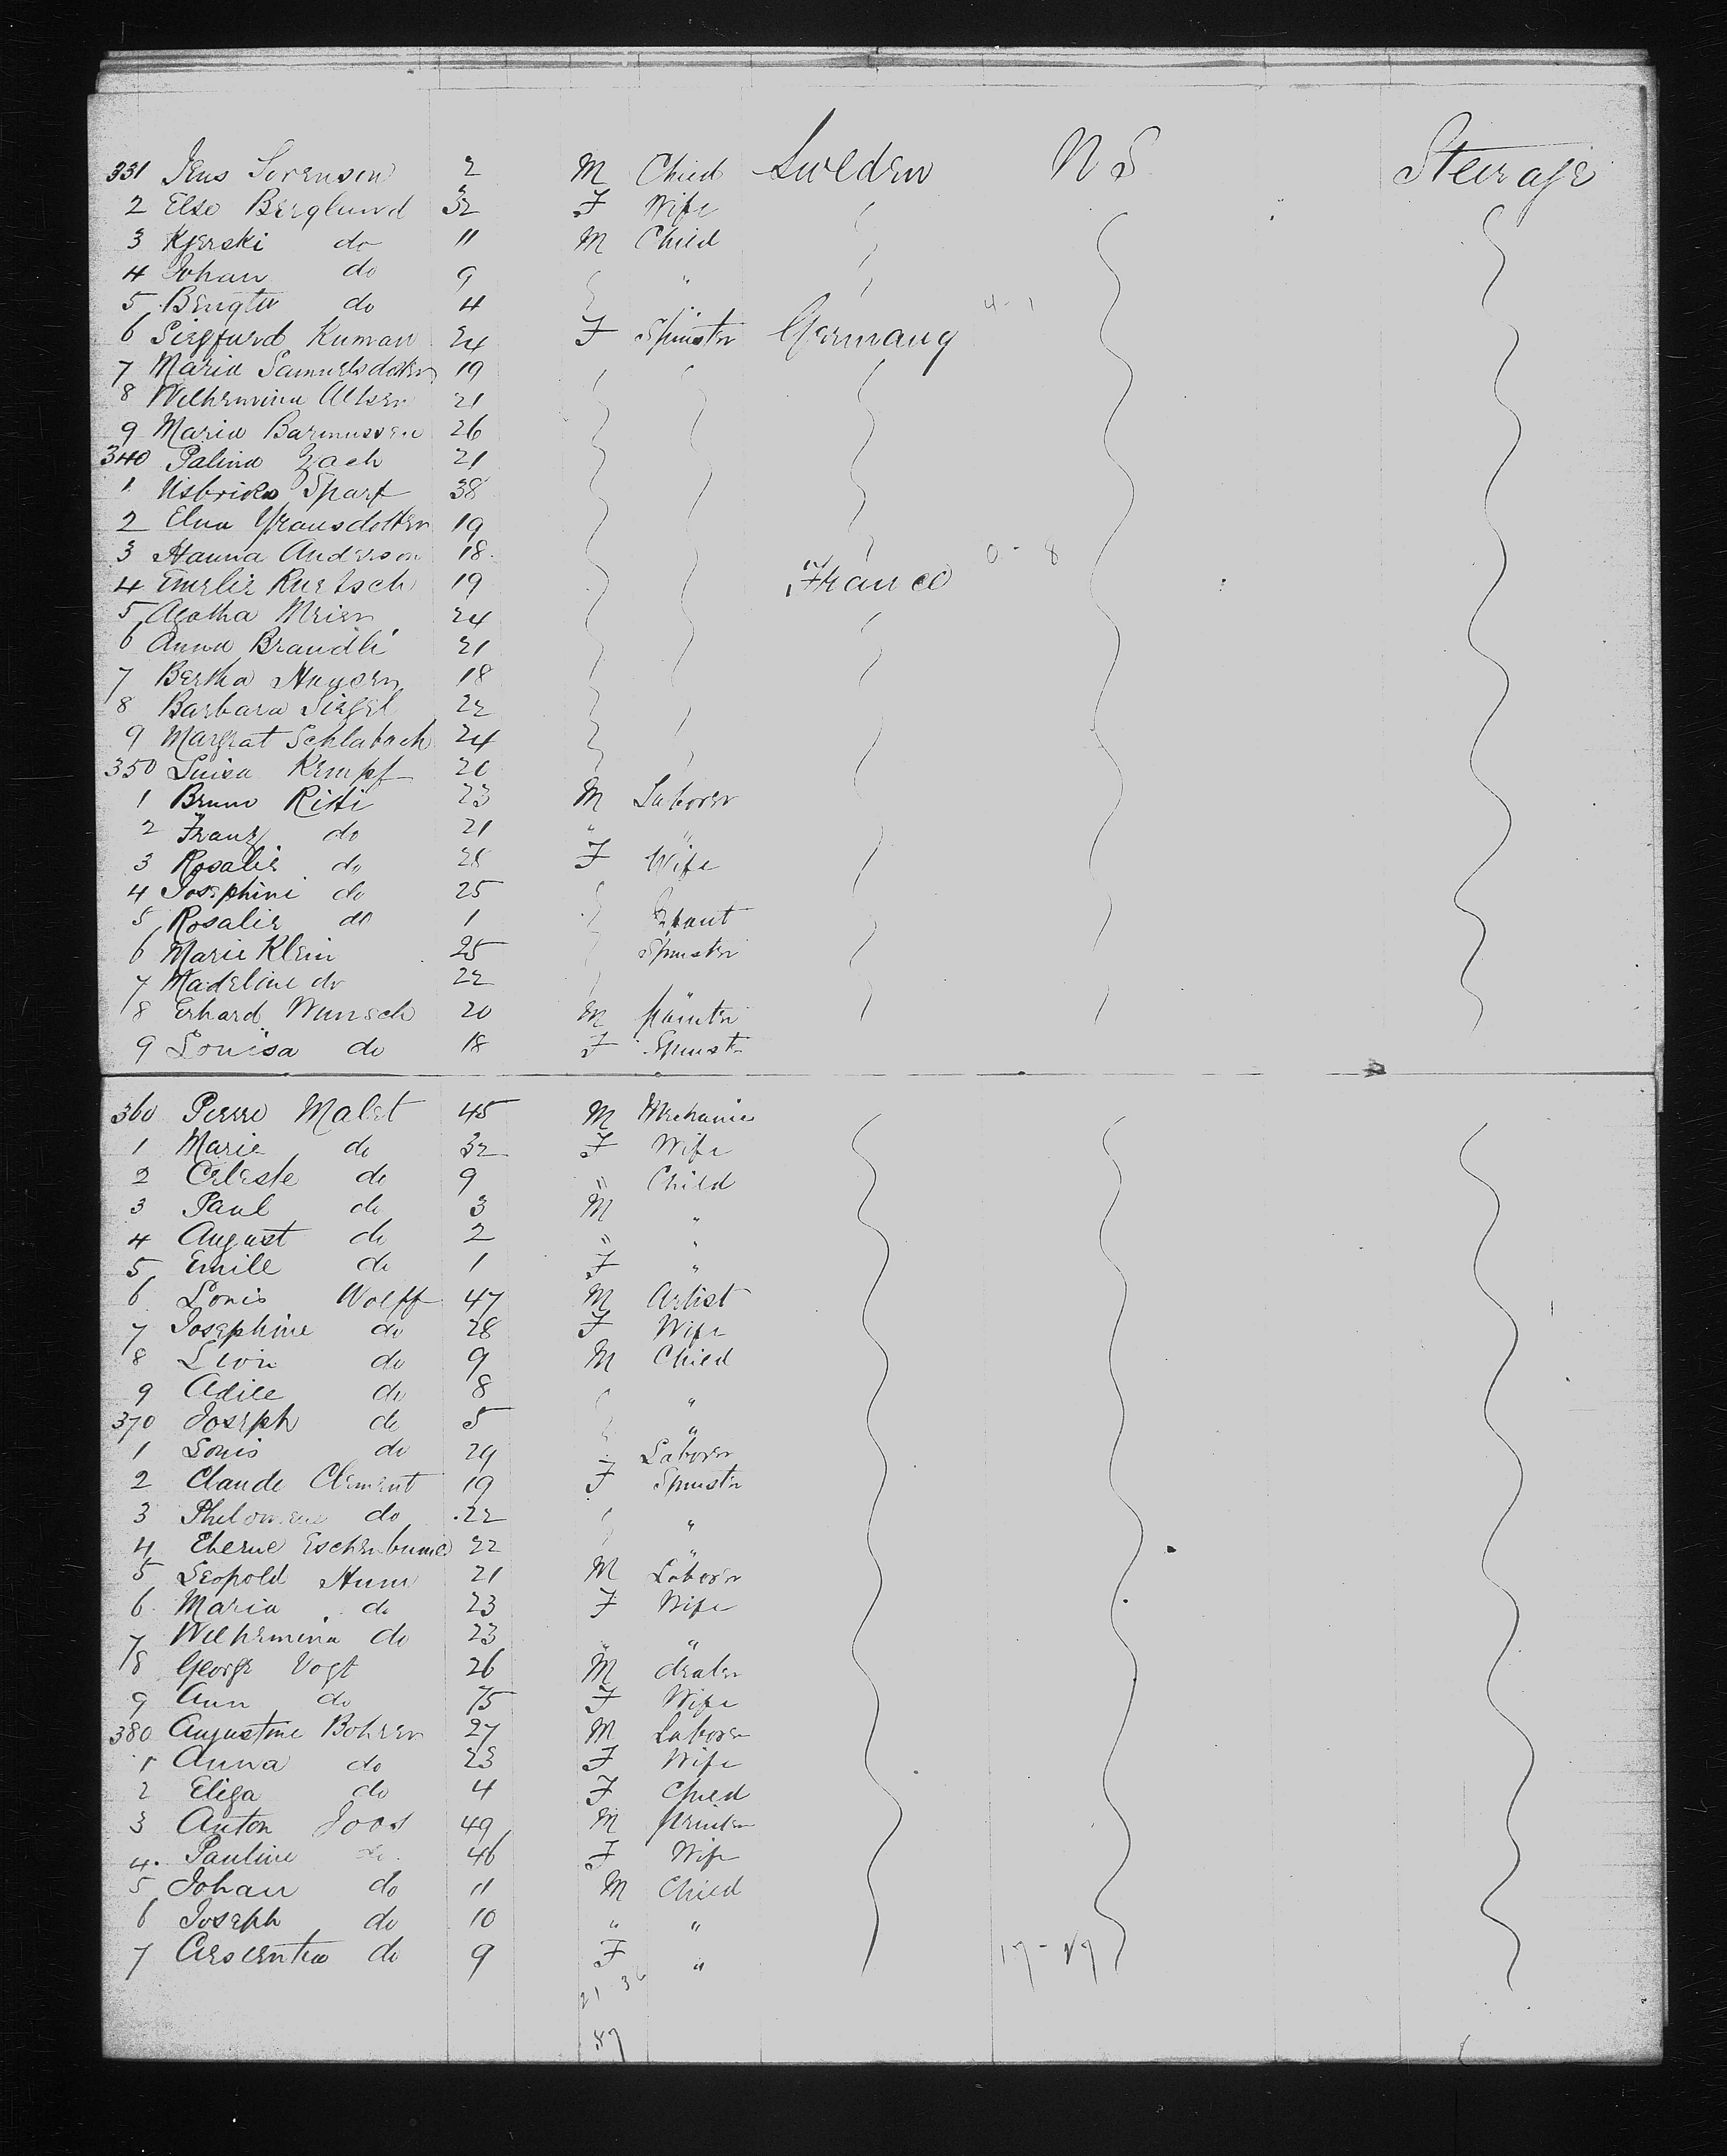 331 Jens Sorensen 2 M Child Sweden N S Steerage
2 Else Berglund 32 F Wife
3 Kjerski do 11 M Child
4 Johan do 9 "
5 Bengta do 4 " 4-1
6 Siegfurd Kuman 24 F Spinster Germany
7 Maria Samuelsdotter 19
8 Wilhermina Alber 21
9 Maria Barmussen 26
340 Palina Zach 21
1 Sparf 38
2 Elna Fransdotter 19
3 Hanna Anderson 18 0-8
4 Emelie Kuetsch 19 France
5 Agatha Meier 24
6 Anna Brandli 21
7 Bertha 18
8 Barbara Siegel 22
9 Margrat Schlabach 24
350 Luisa Kempf 26
1 Bruno Ritti 23 M Laborer
2 Franz do 21 " "
3 Rosalie do 28 F Wife
4 Josephini do 25
5 Rosalie do 1 Infant
6 Marie Klein 25 Spinster
7 Madeline do 22 "
8 Erhard Wunsch 20 M painter
9 Louisa do 18 F Spinst
360 Pierre Malet 45 M Mechanic
1 Marie do 32 F Wife
2 Celeste do 9 " Child
3 Paul do 3 M "
4 August do 2 " "
5 Emile do 1 F "
6 Louis Wolff 47 M Artist
7 Josephine do 28 F Wife
8 Leon do 9 M Child
9 Adile do 8 "
370 Joseph do 5 "
1 Louis do 29 Laborer
2 Claude Clement 19 F Spinster
3 Philomene do 22 "
4 22 "
5 Leopold Hum 21 M Laborer
6 Maria do 23 F Wife
7 Wilhermina do 23 " "
8 George Vogt 26 M dealer
9 Ann do 75 F Wife
380 Augustine Bohrer 27 M Laborer
1 Anna do 23 F Wife
2 Eliza do 4 F Child
3 Anton Joos 49 M printer
4 Pauline do 46 F Wife
5 Johan do 11 M Child
6 Joseph do 10 " "
7 Crescentia do 9 F " 17-
21-36